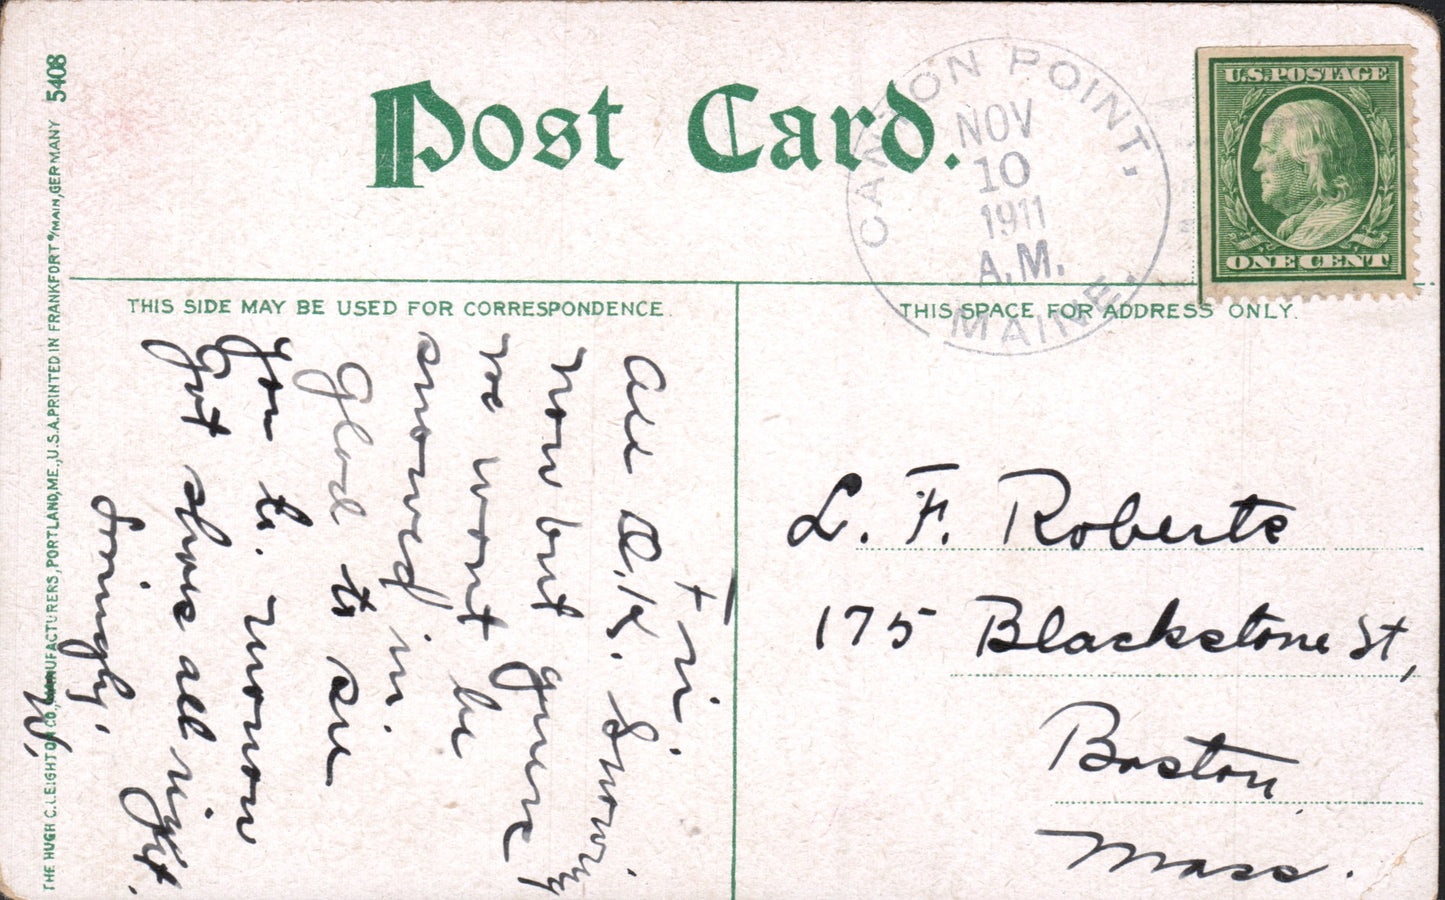 Post Card.
CANTON POINT,
NOV
10
1911
A.M.
MAINE.
U.S. POSTAGE
ONE CENT
THIS SIDE MAY BE USED FOR CORRESPONDENCE.
THIS SPACE FOR ADDRESS ONLY.
+ Fri.
All O.K. Snowing
now but guess
we wont be
snowed in.
Glad to see
you to. morrow
Got shoes all right.
Lovingly,
L. F. Roberts
175 Blackstone St,
Boston,
Mass.
THE HUGH C. LEIGHTON CO., MANUFACTURERS, PORTLAND, ME., U.S.A. PRINTED IN FRANKFORT o/MAIN, GERMANY 5408